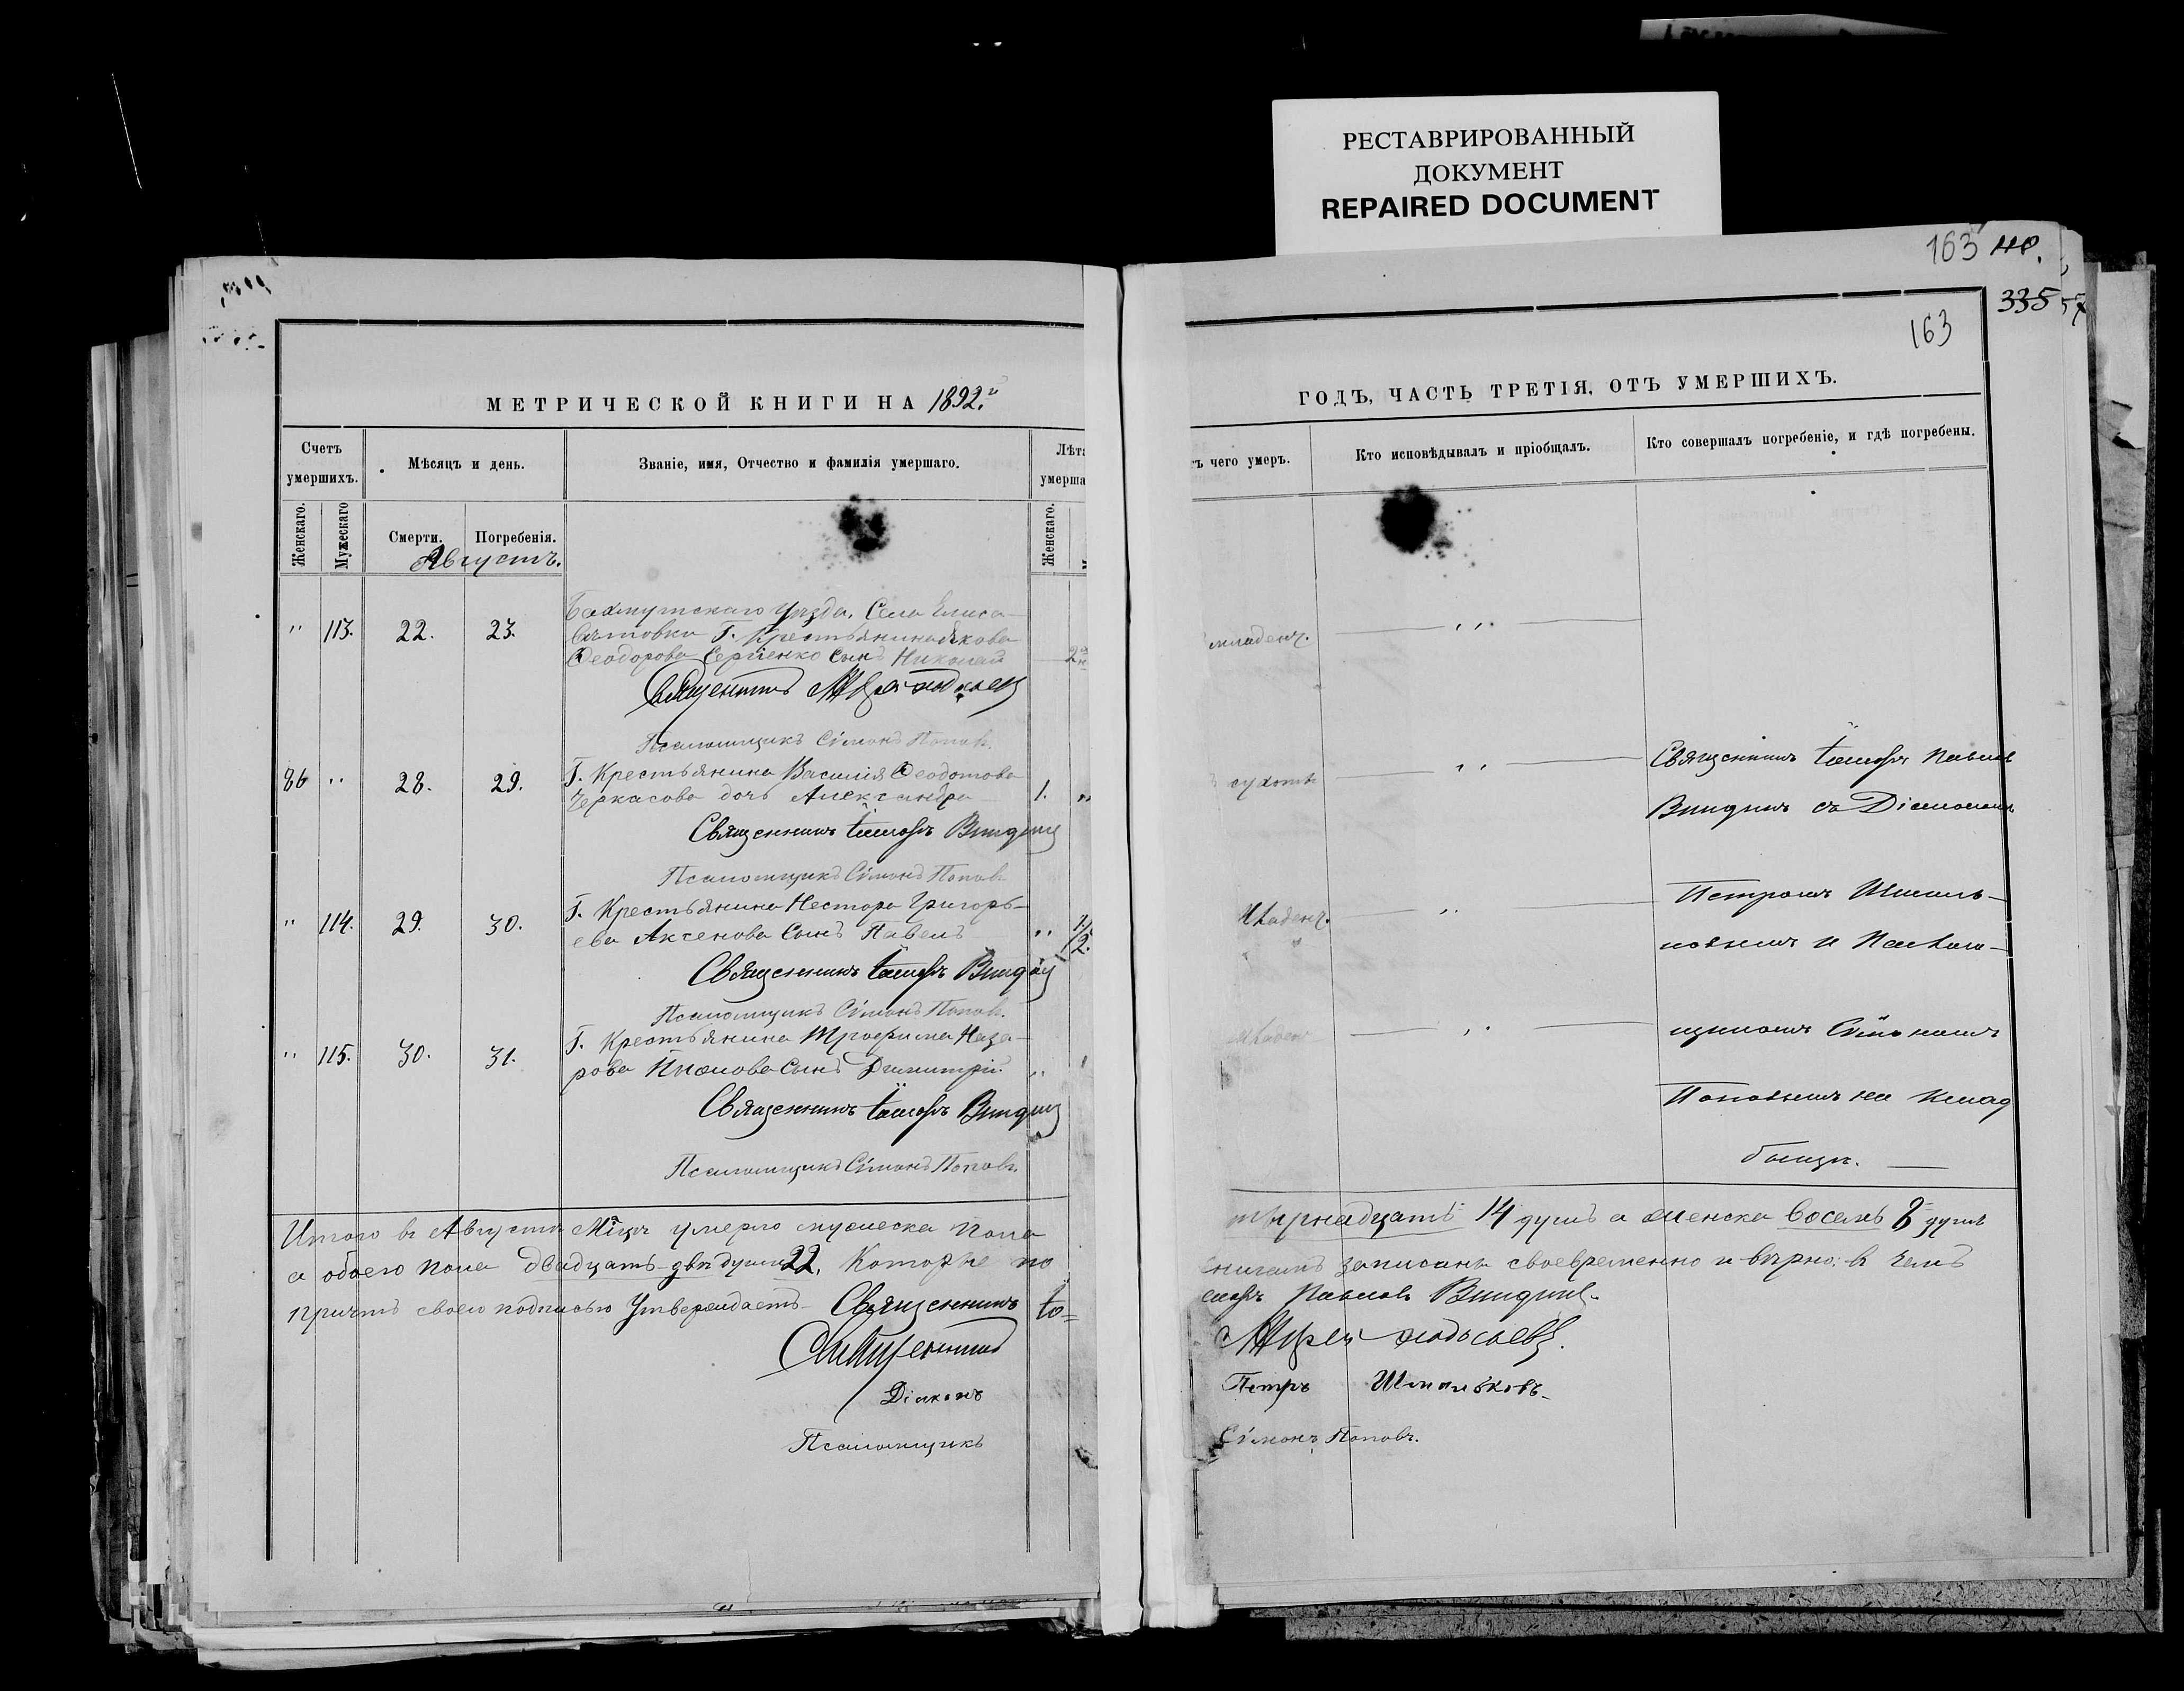 РЕСТАВРИРОВАННЫЙ
ДОКУМЕНТ
REPAIRED DOCUMENT
163
335
163
МЕТРИЧЕСКОЙ КНИГИ НА 1892.й
Счетъ
умершихъ.
Мѣсяцъ и день.
Званіе, имя, Отчество и фамилія умершаго.
Лѣта
умерша
Женскаго.
Мужескаго
Смерти.
Погребенія.
Женскаго.
Августъ.
" 113. 22. 23.
Бахмутскаго Уѣзда, Села Елиса-
ветовки Г. Крестьянина Якова
Ѳеодорова Сергіенко сынъ Николай
Священникъ
Псаломщикъ Сѵмонъ Поповъ.
86 " 28. 29.
Г. Крестьянина Василія Ѳеодотова
Черкасова дочь Александра 1. "
Священникъ Іаковъ Виндинъ
Псаломщикъ Сѵмонъ Поповъ
" 114. 29. 30.
Г. Крестьянина Нестора Григорь-
ева Аксенова сынъ Павелъ " 1/2.
Священникъ Іаковъ
Псаломщикъ Сѵмонъ Поповъ.
" 115. 30. 31.
Г. Крестьянина Трофима Наза-
рова сынъ Димитрій. "
Священникъ Іаковъ
Псаломщикъ Сѵмонъ Поповъ.
Итого въ Августѣ Мцѣ умерло мужеска пола
а обоего пола двадцать двѣ души 22, Которые по
причтъ своею подписью утверждаетъ. Священникъ Іа=
Священникъ
Діаконъ
Псаломщикъ
ГОДЪ, ЧАСТЬ ТРЕТІЯ, ОТЪ УМЕРШИХЪ.
тъ чего умеръ.
Кто исповѣдывалъ и пріобщалъ.
Кто совершалъ погребеніе, и гдѣ погребены.
младенч. "
сухоты "
Священникъ Іаковъ Павловъ
съ Діакономъ
младенч. "
Петромъ Шмаль-
ковымъ и Псалом-
младенч "
щикомъ Сѵмономъ
Поповымъ на клад
бищѣ.
тырнадцать 14 душъ а женска восемь 8 душъ
книгамъ записаны своевременно и вѣрно: въ чемъ
ковъ Павловъ
Петръ Шмальковъ.
Сѵмонъ Поповъ.